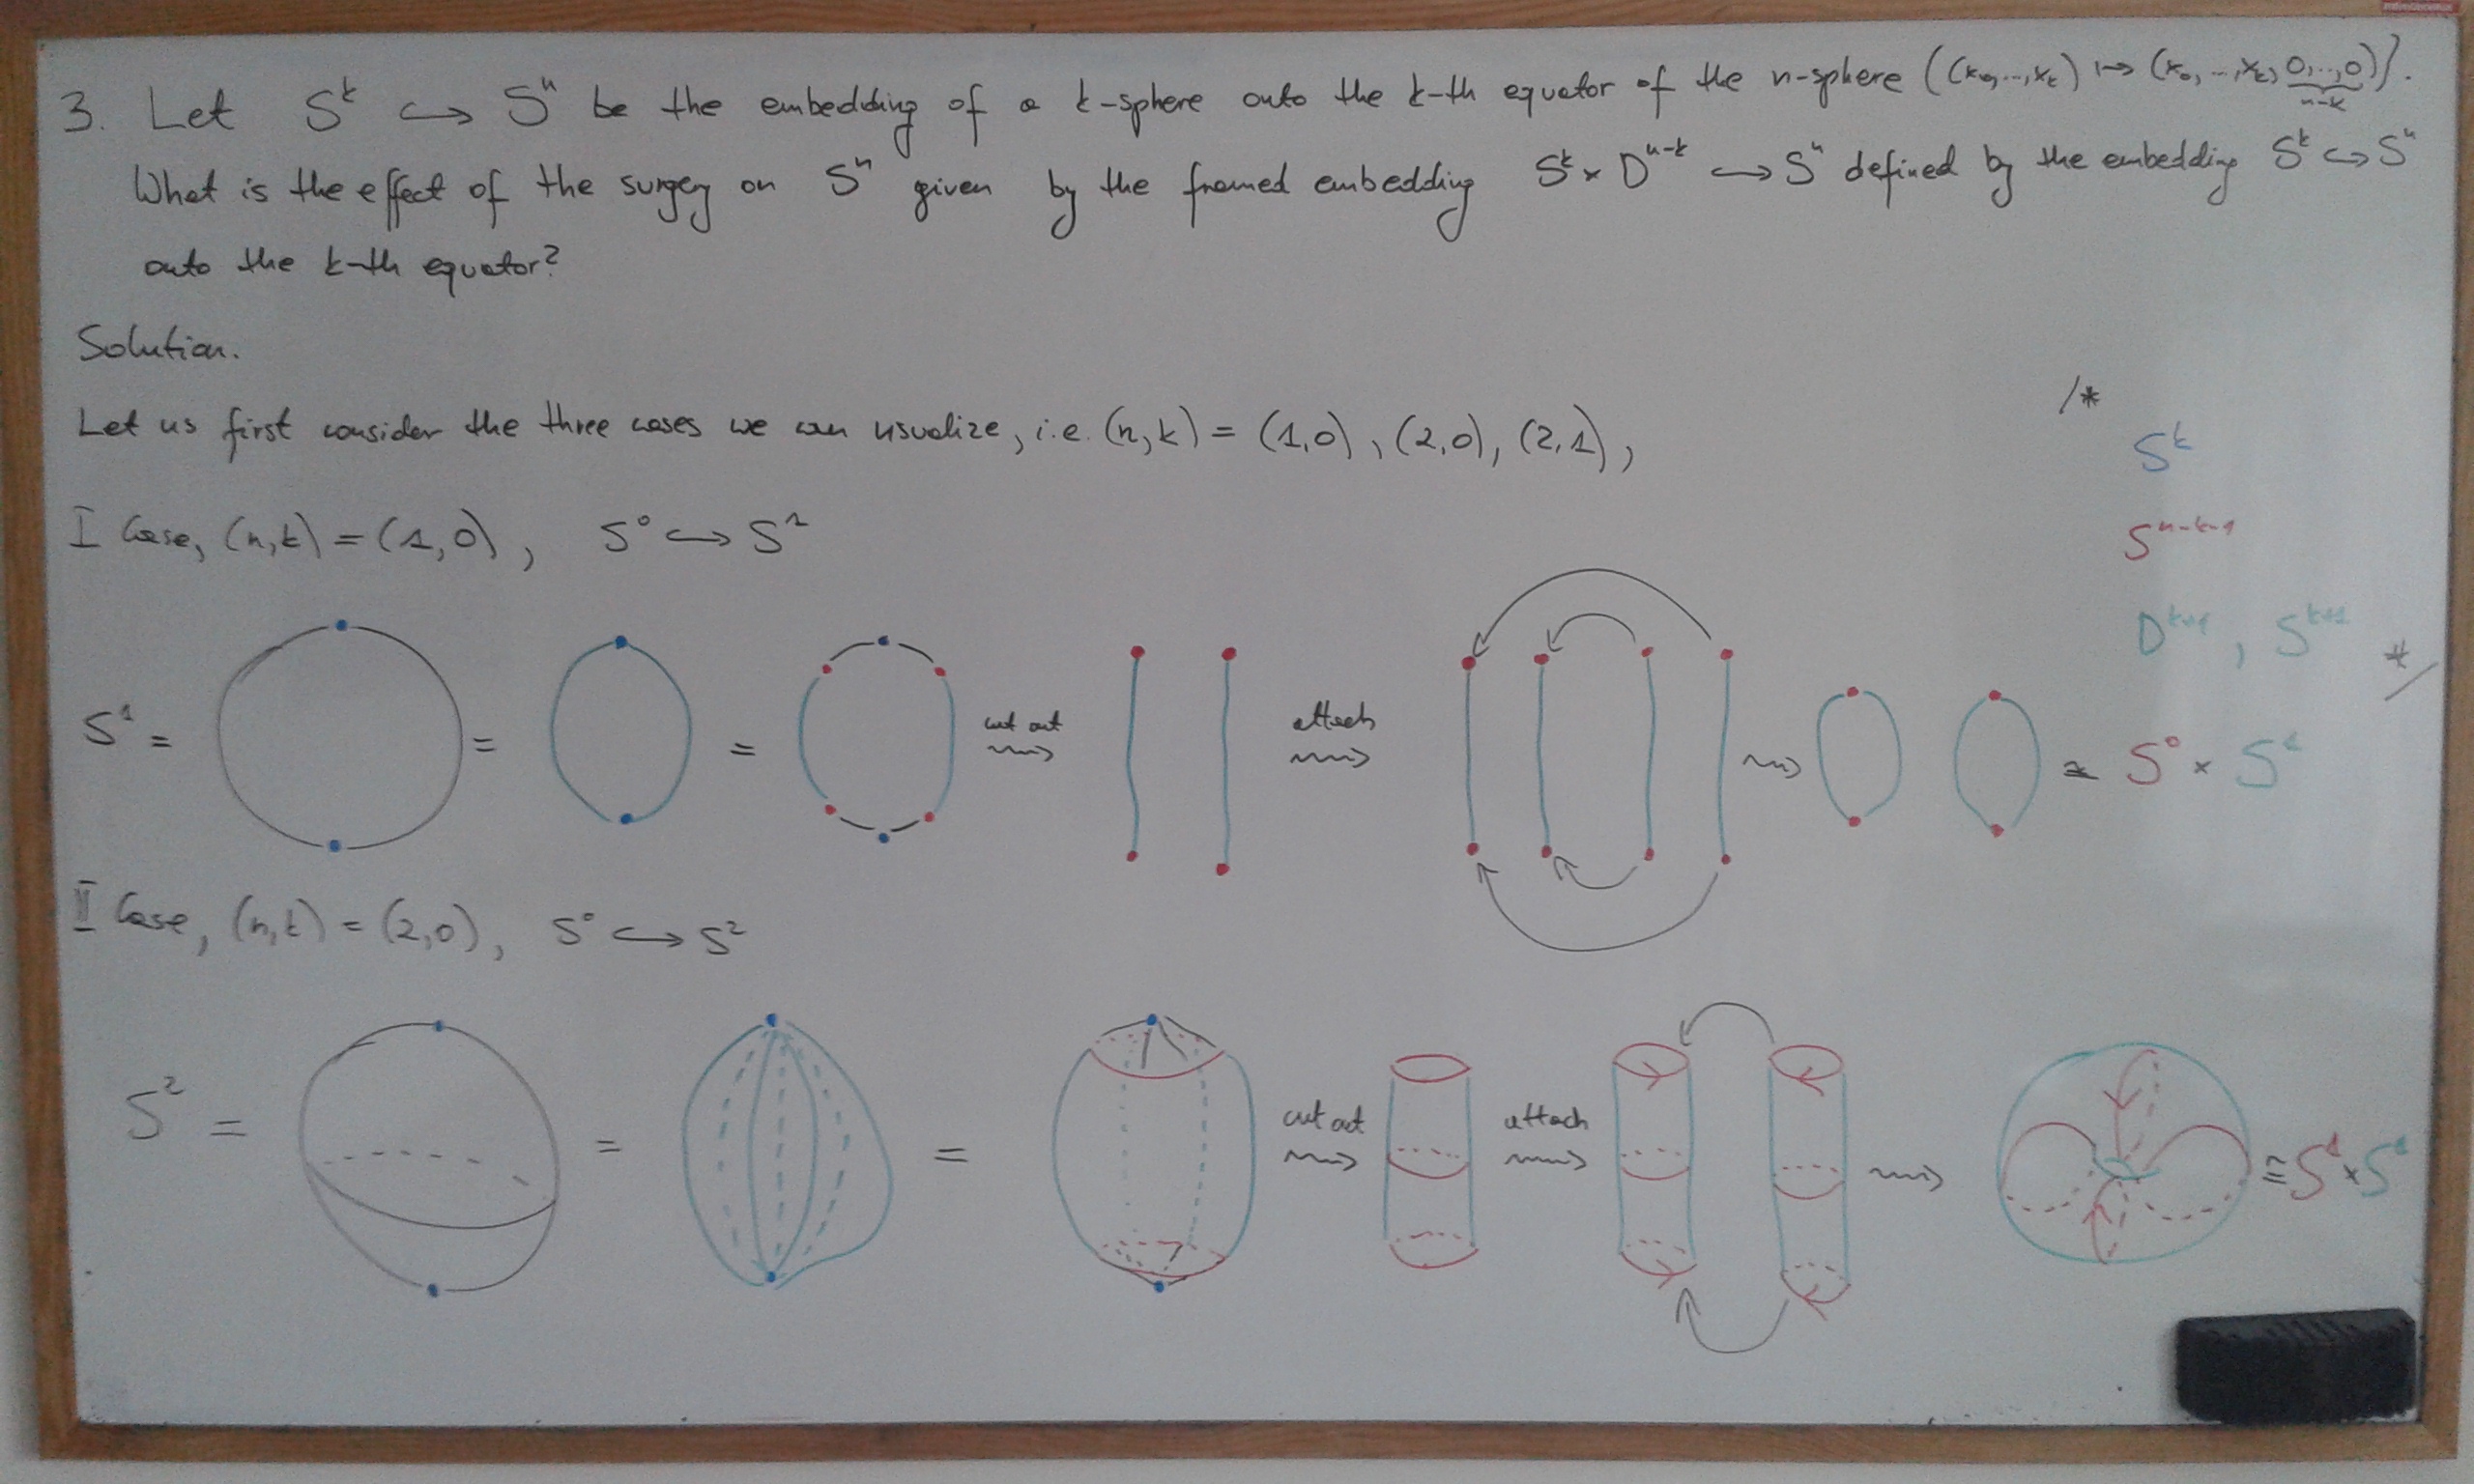 3. Let S^k ↪ S^n be the embedding of a k-sphere onto the k-th equator of the n-sphere ((x_0,...,x_k) ↦ (x_0,...,x_k,0,...,0)).
n-k
What is the effect of the surgery on S^n given by the framed embedding S^k × D^{n-k} ↪ S^n defined by the embedding S^k ↪ S^n
onto the k-th equator?
Solution.
Let us first consider the three cases we can visualize, i.e. (n,k) = (1,0), (2,0), (2,1),
/*
S^k
S^{n-k-1}
D^{k+1}, S^{k+1}
*/
I Case, (n,k) = (1,0), S^0 ↪ S^1
S^1 = = = cut out ⇝ attach ⇝ ⇝ ≅ S^0 × S^1
II Case, (n,k) = (2,0), S^0 ↪ S^2
S^2 = = = cut out ⇝ attach ⇝ ⇝ ≅ S^1 × S^1